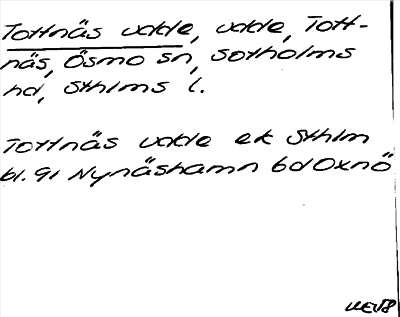 Tottnäs udde, udde, Tott-
näs, Ösmo sn, Sotholms
hd, Sthlms l.
Tottnäs udde ek Sthlm
bl. 91 Nynäshamn 6d Oxnö